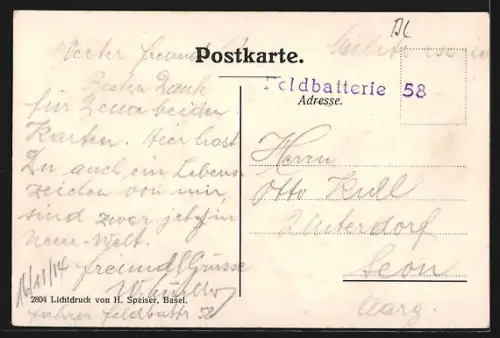 Postkarte.
Feldbatterie 58
Adresse.
Werter Freund
Besten Dank
für Deine beiden
Karten. Hier hast
Du auch ein Lebens-
zeichen von mir,
sind zwar jetzt in
Neu-Welt.
Freundl Grüsse
16/11/14
Herrn
Otto Kull
z Unterdorf
Seon
Aarg.
2804 Lichtdruck von H. Speiser, Basel.
Fahrer Feldbattr 58